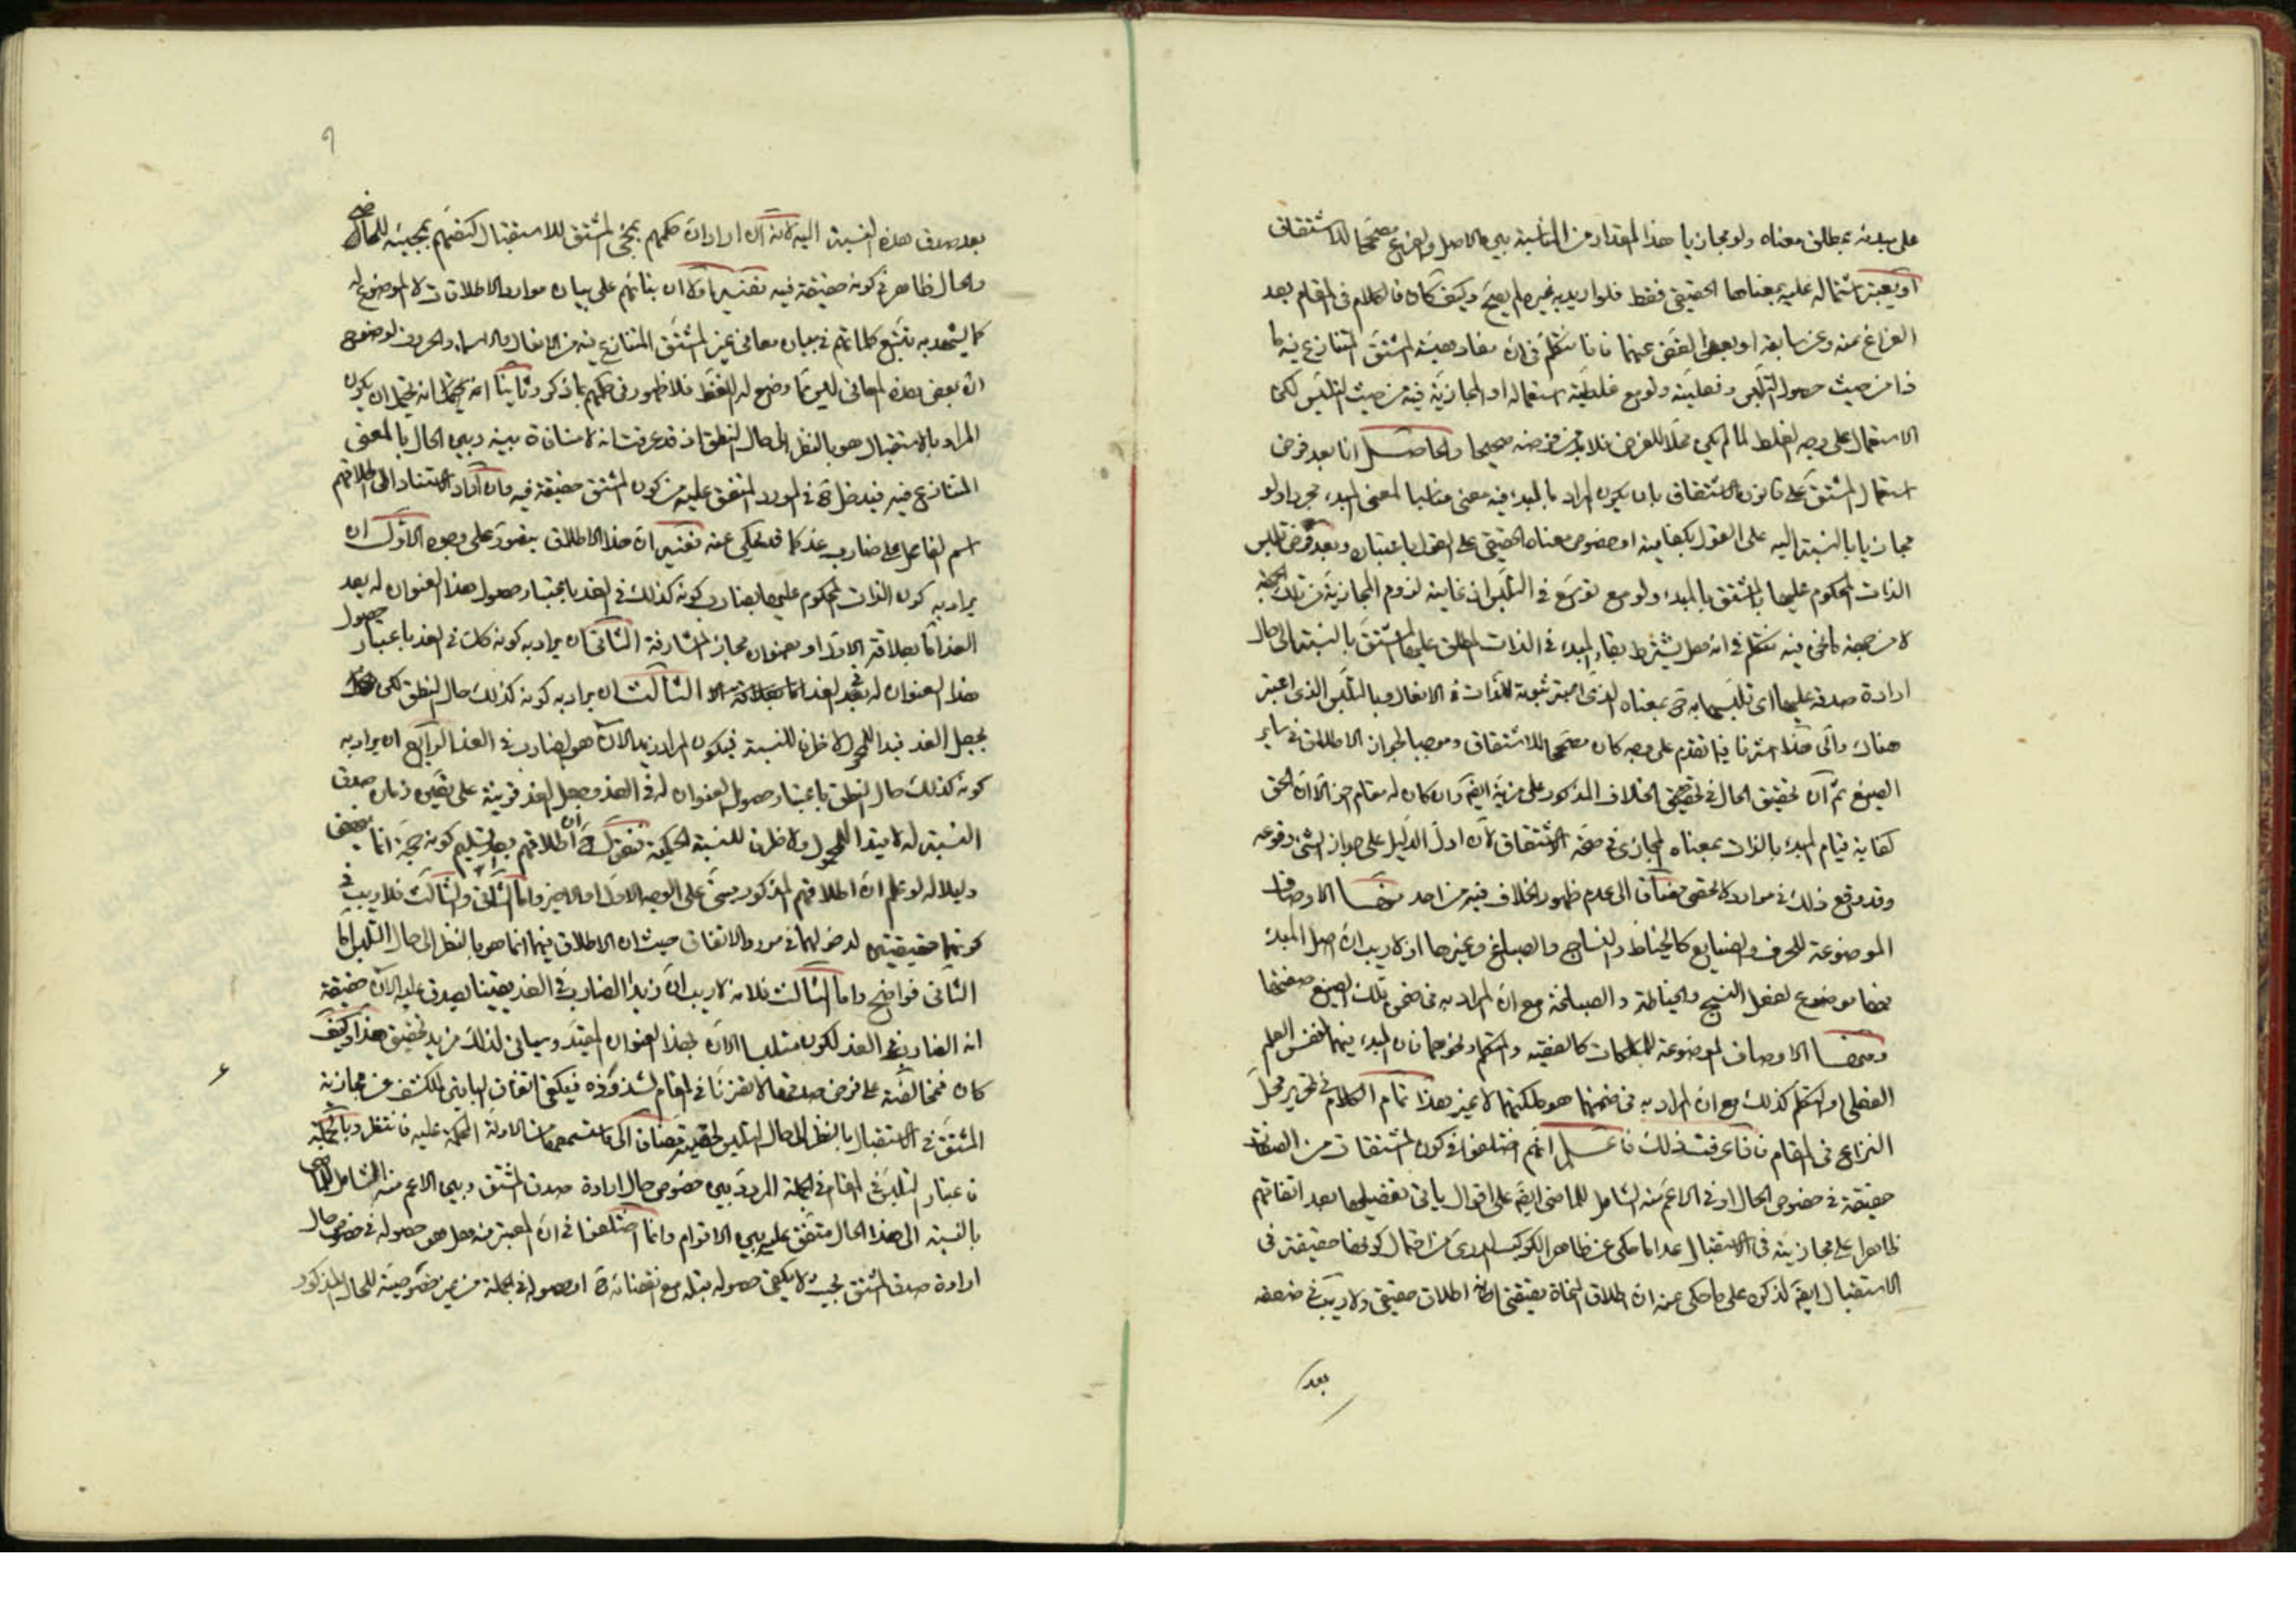 على مبدئه بمطلق معناه ولو مجازيا هذا المقدار من المناسبة بين الاصل والفرع مصححا للاشتقاق
او يعتبر اشتماله عليه بمعناها الحقيقي فقط فلو اريد به غيره لم يصح وكيف كان فالكلام في المقام بعد
الفراغ عنه وعن سابقه او بعد الغض عنهما فانا نتكلم في ان مفاد هيئة المشتق المتنازع فيه ما
ذا من حيث حصول التلبس وفعليته ولو مع غلطية استعماله او المجازية فيه من حيث التلبس لكن
الاستعمال على وجه الغلط لما لم يكن محلا للغرض فلا بد من فرضه صحيحا والحاصل انا بعد فرض
استعمال المشتق على قانون الاشتقاق بان يكون المراد بالمبدء فيه معنى مناسبا لمعنى المبدء مجردا ولو
مجازيا بالنسبة اليه على القول بكفايته او خصوص معناه الحقيقي على القول باعتباره وبعد فرض تلبس
الذات المحكوم عليها بالمشتق بالمبدء ولو مع توسع في التلبس اذ غايته لزوم المجازية من تلك الجهة
لا من جهة ما نحن فيه نتكلم في انه هل يشترط بقاء المبدء في الذات المطلق عليها المشتق بالنسبة الى حال
ارادة صدقه عليها اى تلبسها به ح بمعناه الذى اعتبر ثبوته للذات في الافعال وبالتلبس الذى اعتبر
هناك والى هذا اشرنا فيما تقدم على وجه كان مصححا للاشتقاق وموجبا لجواز الاطلاق في ساير
الصيغ ثم ان تحقيق الحال في تحقيق الخلاف المذكور على مزية ايض وان كان له مقام اخر الا ان الحق
كفاية قيام المبدء بالذات بمعناه المجازى في صحة الاشتقاق لان اول الدليل على جواز الشئ وقوعه
وقد وقع ذلك في موارد لا تحصى مضافا الى عدم ظهور الخلاف فيه من احد منها الاوصاف
الموضوعة للحرف والصنايع كالخياط والنساج والصباغ وغيرها اذ لا ريب ان اصل المبدء
فيها موضوع لفعل النسج والخياطة والصباغة مع ان المراد به في ضمن تلك الصيغ صنعتها
ومنها الاوصاف الموضوعة للملكات كالفقيه والمتكلم ونحوهما فان المبدء فيهما لنفس العلم
الفعلى او التكلم كذلك مع ان المراد به في ضمنهما هو ملكتهما لا غير هذا تمام الكلام في تحرير محل
النزاع في المقام فاذا عرفت ذلك فاعلم انهم اختلفوا في كون المشتقات من الصفات
حقيقة في خصوص الحال او في الاعم منه الشامل للماضى ايض على اقوال ياتى تفصيلها بعد اتفاقهم
ظاهرا على مجازيته في الاستقبال عدا ما حكى عن ظاهر الكوكب الدرى من احتمال كونها حقيقة في
الاستقبال ايض لذكره على ما حكى عنه ان اطلاق النحاة يقتضى انه اطلاق حقيقي ولا ريب في ضعفه
بعد
٩
بعد صدق هذه النسبة اليه لانه ان اراد ان حكمهم بمجئ المشتق للاستقبال كتضمهم بمجيئه للماضى
والحال ظاهر في كونه حقيقة فيه ففيه اولا ان بنائهم على بيان موارد الاطلاقات لا الموضوع له
كما يشهد به تتبع كلماتهم في بيان معاني غير المشتق المتنازع فيه من الافعال والاسماء والحروف لوضوح
ان بعض هذه المعاني ليس مما وضع له اللفظ فلا ظهور في حكمهم بما ذكر وثانيا انه يحتمل ان يكون
المراد بالاستقبال هو بالنظر الى حال النطق اذ قد عرفت انه لا منافاة بينه وبين الحال بالمعنى
المتنازع فيه فيدخل ح في المورد المتفق عليه من كون المشتق حقيقة فيه وان اراد الاستناد الى اطلاقهم
اسم الفاعل على ضارب غد كما قد يحكى عنه ففيه ان هذا الاطلاق يتصور على وجوه الاول ان
يراد به كون الذات المحكوم عليها بضارب كونه كذلك في الغد باعتبار حصول هذا العنوان له بعد
الغد اما بعلاقة الاول او بعنوان مجاز المشارفة الثانى ان يراد به كونه كك في الغد باعتبار حصول
هذا العنوان له في الغد الثالث ان يراد به كونه كذلك حال النطق لكن
بجعل الغد قيدا للمحمول لا ظرفا للنسبة فيكون المراد زيد الان هو الضارب في الغد الرابع ان يراد به
كونه كذلك حال النطق باعتبار حصول العنوان له في الغد وبجعل الغد قرينة على تعين زمان صدق
النسبة له لا قيدا للمحمول ولا ظرفا للنسبة الحكمية فنقول ح ان اطلاقهم بعد تسليم كونه حجة انما ينهض
دليلا له لو علم ان اطلاقهم المذكور مبنى على الوجه الاول او الاخير واما الثانى والثالث فلا ريب في
كونهما حقيقيتين لدخولهما في مورد الاتفاق حيث ان الاطلاق فيهما انما هو بالنظر الى حال التلبس اما
الثانى فواضح واما الثالث فلانه لا ريب ان زيدا الضارب في الغد يقينا يصدق عليه الان حقيقة
انه الضارب في الغد لكونه متلبسا الان بهذا العنوان المقيد وسياتى لذلك مزيد تحقيق هذا وكيف
كان فمخالفته على فرض صدقها لا تضرنا في المقام لشذوذه فيكفى اتفاق الباقين للكشف عن مجازية
المشتق في الاستقبال بالنظر الى حال التلبس مضافا الى ما ستسمعها من الادلة المحكمة عليه فانتظر وبالجملة
فاعتبار التلبس في المقام في الجملة المردد بين خصوص حال ارادة صدق المشتق وبين الاعم منه الشامل للماضى
بالنسبة الى هذا الحال متفق عليه بين الاقوام وانما اختلفوا في ان المعتبر منه هل هو حصوله في خصوص حال
ارادة صدق المشتق بحيث لا يكفى حصوله قبله مع انقضائه ح او حصوله في الجملة من غير خصوصية للحال المذكور